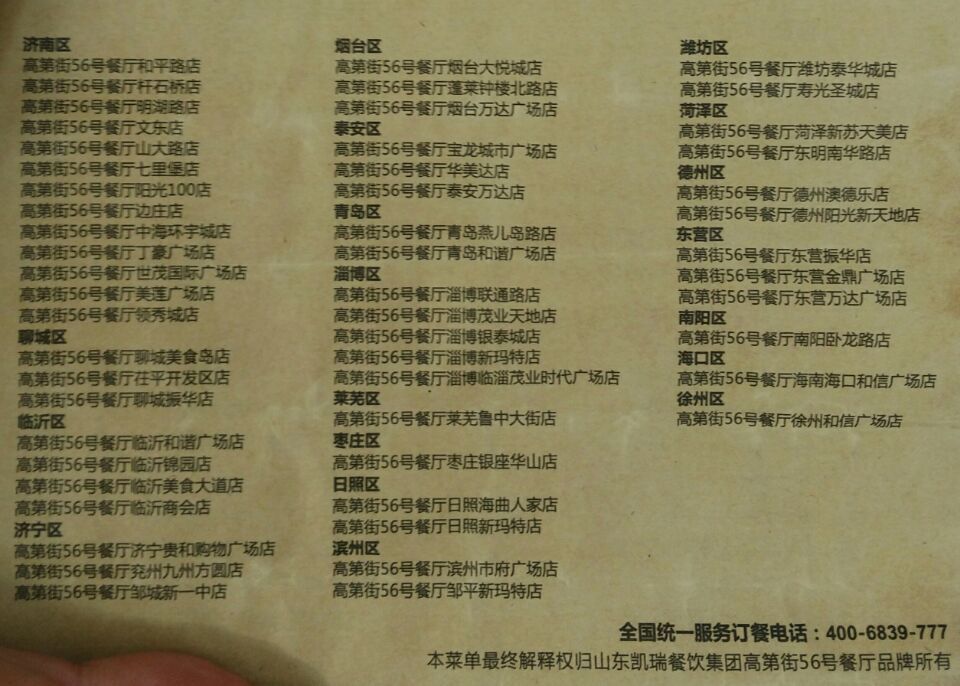 济南区
高第街56号餐厅和平路店
高第街56号餐厅杆石桥店
高第街56号餐厅明湖路店
高第街56号餐厅文东店
高第街56号餐厅山大路店
高第街56号餐厅七里堡店
高第街56号餐厅阳光100店
高第街56号餐厅边庄店
高第街56号餐厅中海环宇城店
高第街56号餐厅丁豪广场店
高第街56号餐厅世茂国际广场店
高第街56号餐厅美莲广场店
高第街56号餐厅领秀城店
聊城区
高第街56号餐厅聊城美食岛店
高第街56号餐厅茌平开发区店
高第街56号餐厅聊城振华店
临沂区
高第街56号餐厅临沂和谐广场店
高第街56号餐厅临沂锦园店
高第街56号餐厅临沂美食大道店
高第街56号餐厅临沂商会店
济宁区
高第街56号餐厅济宁贵和购物广场店
高第街56号餐厅兖州九州方圆店
高第街56号餐厅邹城新一中店
烟台区
高第街56号餐厅烟台大悦城店
高第街56号餐厅蓬莱钟楼北路店
高第街56号餐厅烟台万达广场店
泰安区
高第街56号餐厅宝龙城市广场店
高第街56号餐厅华美达店
高第街56号餐厅泰安万达店
青岛区
高第街56号餐厅青岛燕儿岛路店
高第街56号餐厅青岛和谐广场店
淄博区
高第街56号餐厅淄博联通路店
高第街56号餐厅淄博茂业天地店
高第街56号餐厅淄博银泰城店
高第街56号餐厅淄博新玛特店
高第街56号餐厅淄博临淄茂业时代广场店
莱芜区
高第街56号餐厅莱芜鲁中大街店
枣庄区
高第街56号餐厅枣庄银座华山店
日照区
高第街56号餐厅日照海曲人家店
高第街56号餐厅日照新玛特店
滨州区
高第街56号餐厅滨州市府广场店
高第街56号餐厅邹平新玛特店
潍坊区
高第街56号餐厅潍坊泰华城店
高第街56号餐厅寿光圣城店
菏泽区
高第街56号餐厅菏泽新苏天美店
高第街56号餐厅东明南华路店
德州区
高第街56号餐厅德州澳德乐店
高第街56号餐厅德州阳光新天地店
东营区
高第街56号餐厅东营振华店
高第街56号餐厅东营金鼎广场店
高第街56号餐厅东营万达广场店
南阳区
高第街56号餐厅南阳卧龙路店
海口区
高第街56号餐厅海南海口和信广场店
徐州区
高第街56号餐厅徐州和信广场店
全国统一服务订餐电话：400-6839-777
本菜单最终解释权归山东凯瑞餐饮集团高第街56号餐厅品牌所有